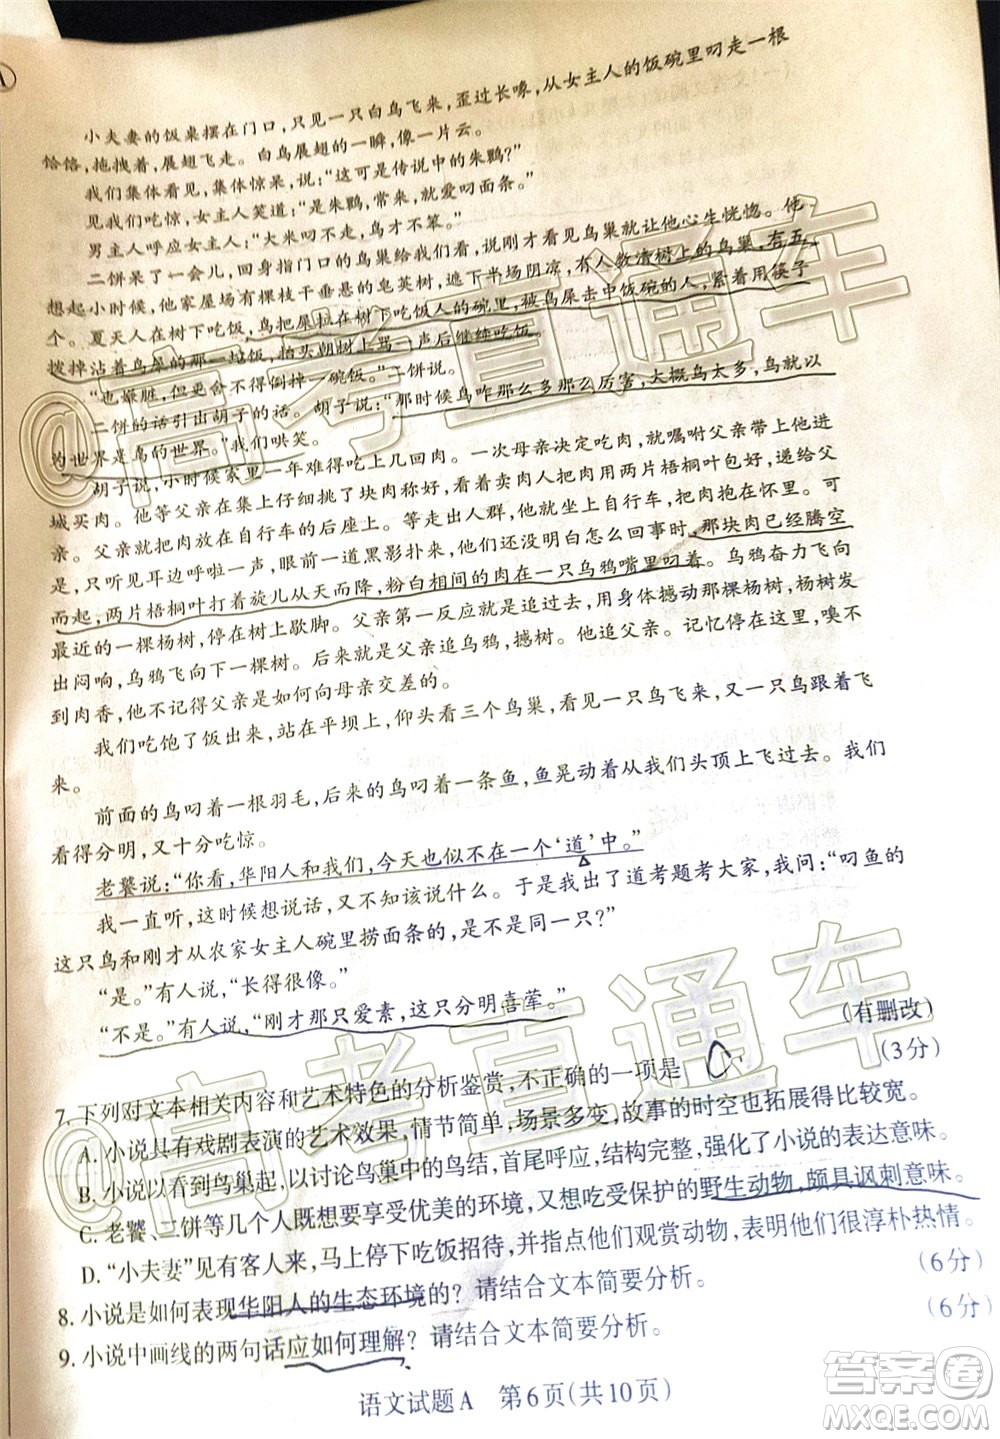 小夫妻的饭桌摆在门口，只见一只白鸟飞来，歪过长喙，从女主人的饭碗里叼走一根
饸饹，拖拽着，展翅飞走。白鸟展翅的一瞬，像一片云。
我们集体看见，集体惊呆，说：“这可是传说中的朱鹮？”
见我们吃惊，女主人笑道：“是朱鹮，常来，就爱叼面条。”
男主人呼应女主人：“大米叼不走，鸟才不笨。”
二饼呆了一会儿，回身指门口的鸟巢给我们看，说刚才看见鸟巢就让他心生恍惚。他
想起小时候，他家屋场有棵枝干垂悬的皂荚树，遮下半场阴凉，有人数清树上的鸟巢，有五
个。夏天人在树下吃饭，鸟把屎拉在树下吃饭人的碗里，被鸟屎击中饭碗的人，紧着用筷子
拨掉沾着鸟屎的那一坨饭，抬头朝树上骂一声后继续吃饭。
“也嫌脏，但更舍不得倒掉一碗饭。”二饼说。
二饼的话引出胡子的话。胡子说：“那时候鸟咋那么多那么厉害，大概鸟以
的世界是鸟的世界。”我们哄笑。
胡子说，小时候家里一年难得吃上几回肉。一次母亲决定吃肉，就嘱咐父亲带上他进
城买肉。他等父亲在集上仔细挑了块肉称好，看着卖肉人用两片梧桐叶包好，递给父
亲。父亲把肉放在自行车的后座上。等走出人群，他和父亲骑上自行车，把肉抱在怀里。可
是，只听见耳边呼啦一声，眼前一道黑影扑来，没等他和父亲明白怎么回事时，那块肉已经腾空
而起，两片梧桐叶打着旋儿从天而降，粉白相间的肉在一只乌鸦嘴里叼着。乌鸦奋力飞向
最近的一棵杨树，停在树上歇脚。父亲第一反应就是追过去，用身体撼动那棵杨树，杨树发
出闷响，乌鸦飞向下一棵树。后来就是父亲追乌鸦，撼树。他追父亲。记忆停在这里，嗅不
到肉香，他不记得父亲是如何向母亲交差的。
我们吃饱了饭出来，站在平坝上，仰头看三个鸟巢，见一只鸟飞来，又一只鸟跟着飞
来。
前面的鸟叼着一根羽毛，后来的鸟叼着一条鱼，鱼晃动着从我们头顶上飞过去。我们
看得分明，又十分吃惊。
老饕说：“你看，华阳人和我们，今天也似不在一个‘道’中。”
我一直听，这时候想说话，却不知该说什么。于是我出了道考题考大家，我问：“叼鱼的
这只鸟和刚才从农家女主人碗里捞面条的，是不是同一只？”
“是。”有人说，“长得很像。”
“不是。”有人说，“刚才那只爱素，这只分明喜荤。”
（有删改）
7. 下列对文本相关内容和艺术特色的分析鉴赏，不正确的一项是 C （3分）
A. 小说具有戏剧表演的艺术效果，情节简单，场景多变，故事的时空也拓展得比较宽。
B. 小说以看到鸟巢起，以讨论鸟巢中的鸟结，首尾呼应，结构完整，强化了小说的表达意味。
C. 老饕、二饼等几个人既想要享受优美的环境，又想吃受保护的野生动物，颇具讽刺意味。
D. “小夫妻”见有客人来，马上停下吃饭招待，并指点他们观赏动物，表明他们很淳朴热情。
8. 小说是如何表现华阳人的生态环境的？请结合文本简要分析。（6分）
9. 小说中画线的两句话应如何理解？请结合文本简要分析。（6分）
语文试题A 第6页（共10页）
@高考直通车
@高考直通车
答案圈
MXQE.COM